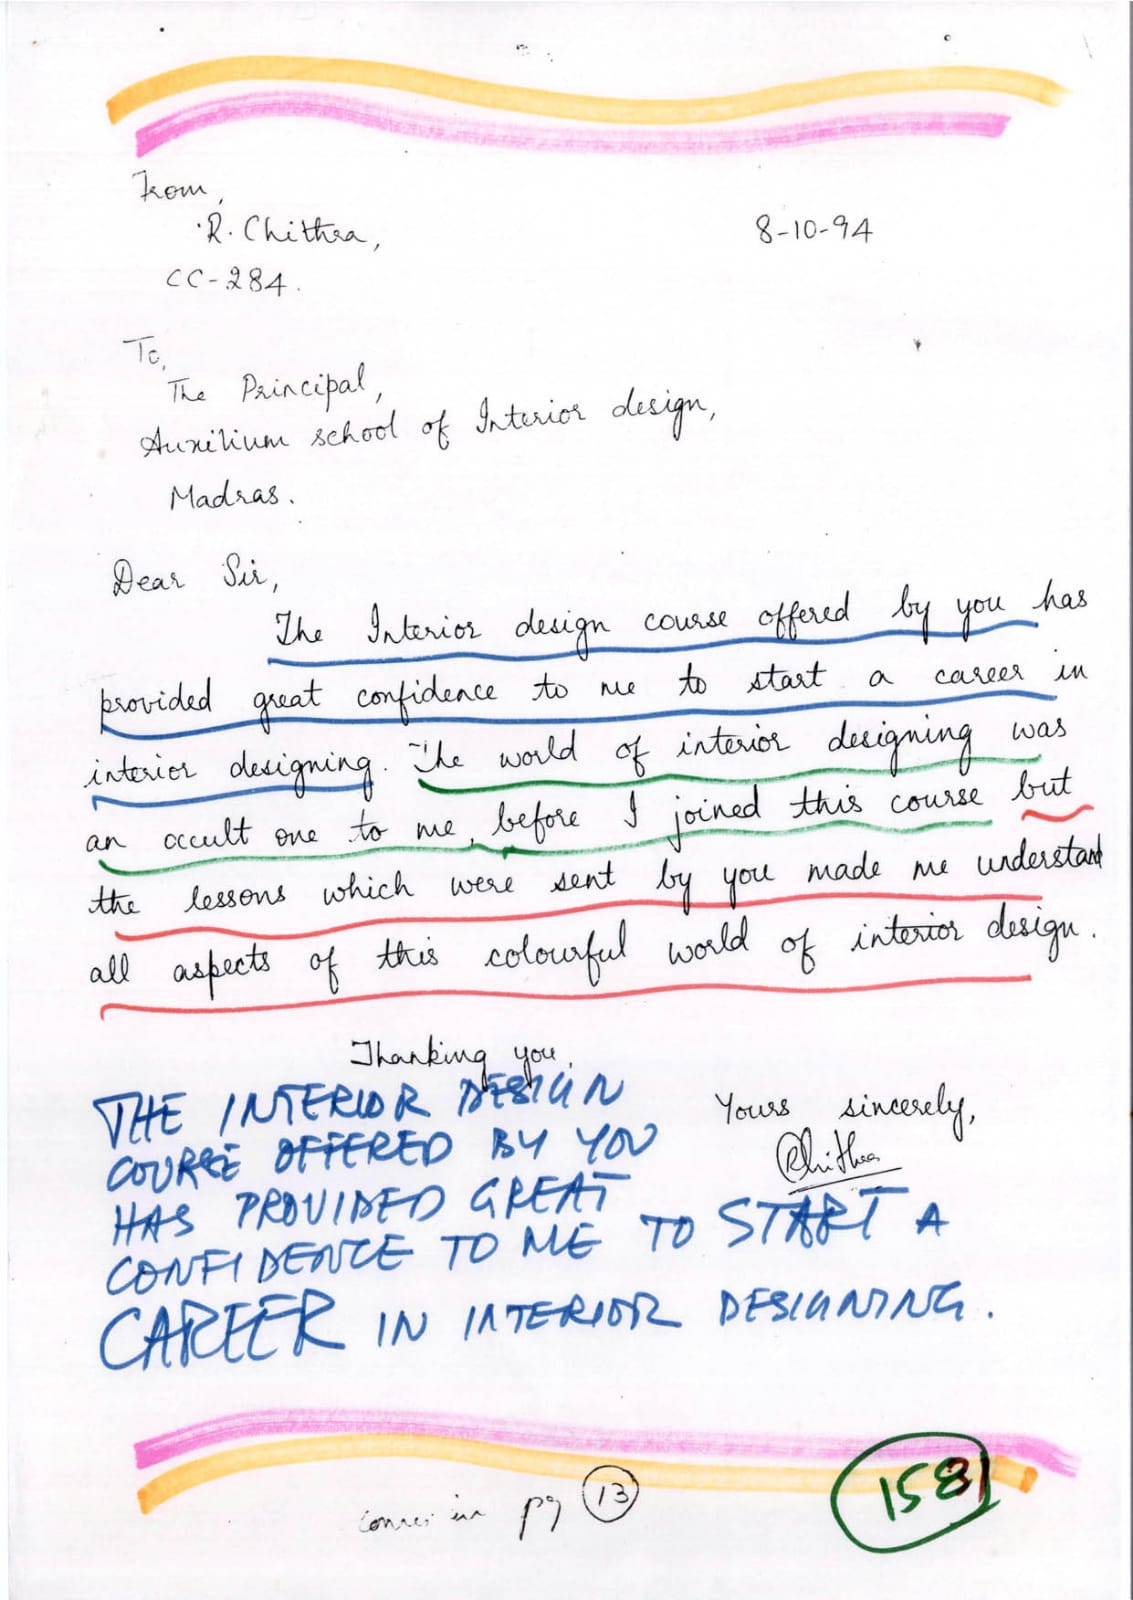 From,
R. Chithra,
8-10-94
CC-284.
To,
The Principal,
Auxilium school of Interior design,
Madras.
Dear Sir,
The Interior design course offered by you has
provided great confidence to me to start a career in
interior designing. The world of interior designing was
an occult one to me, before I joined this course but
the lessons which were sent by you made me understand
all aspects of this colourful world of interior design.
Thanking you,
Yours sincerely,
Chithra
THE INTERIOR DESIGN
COURSE OFFERED BY YOU
HAS PROVIDED GREAT
CONFIDENCE TO ME TO START A
CAREER IN INTERIOR DESIGNING.
comes in pg 13
1581